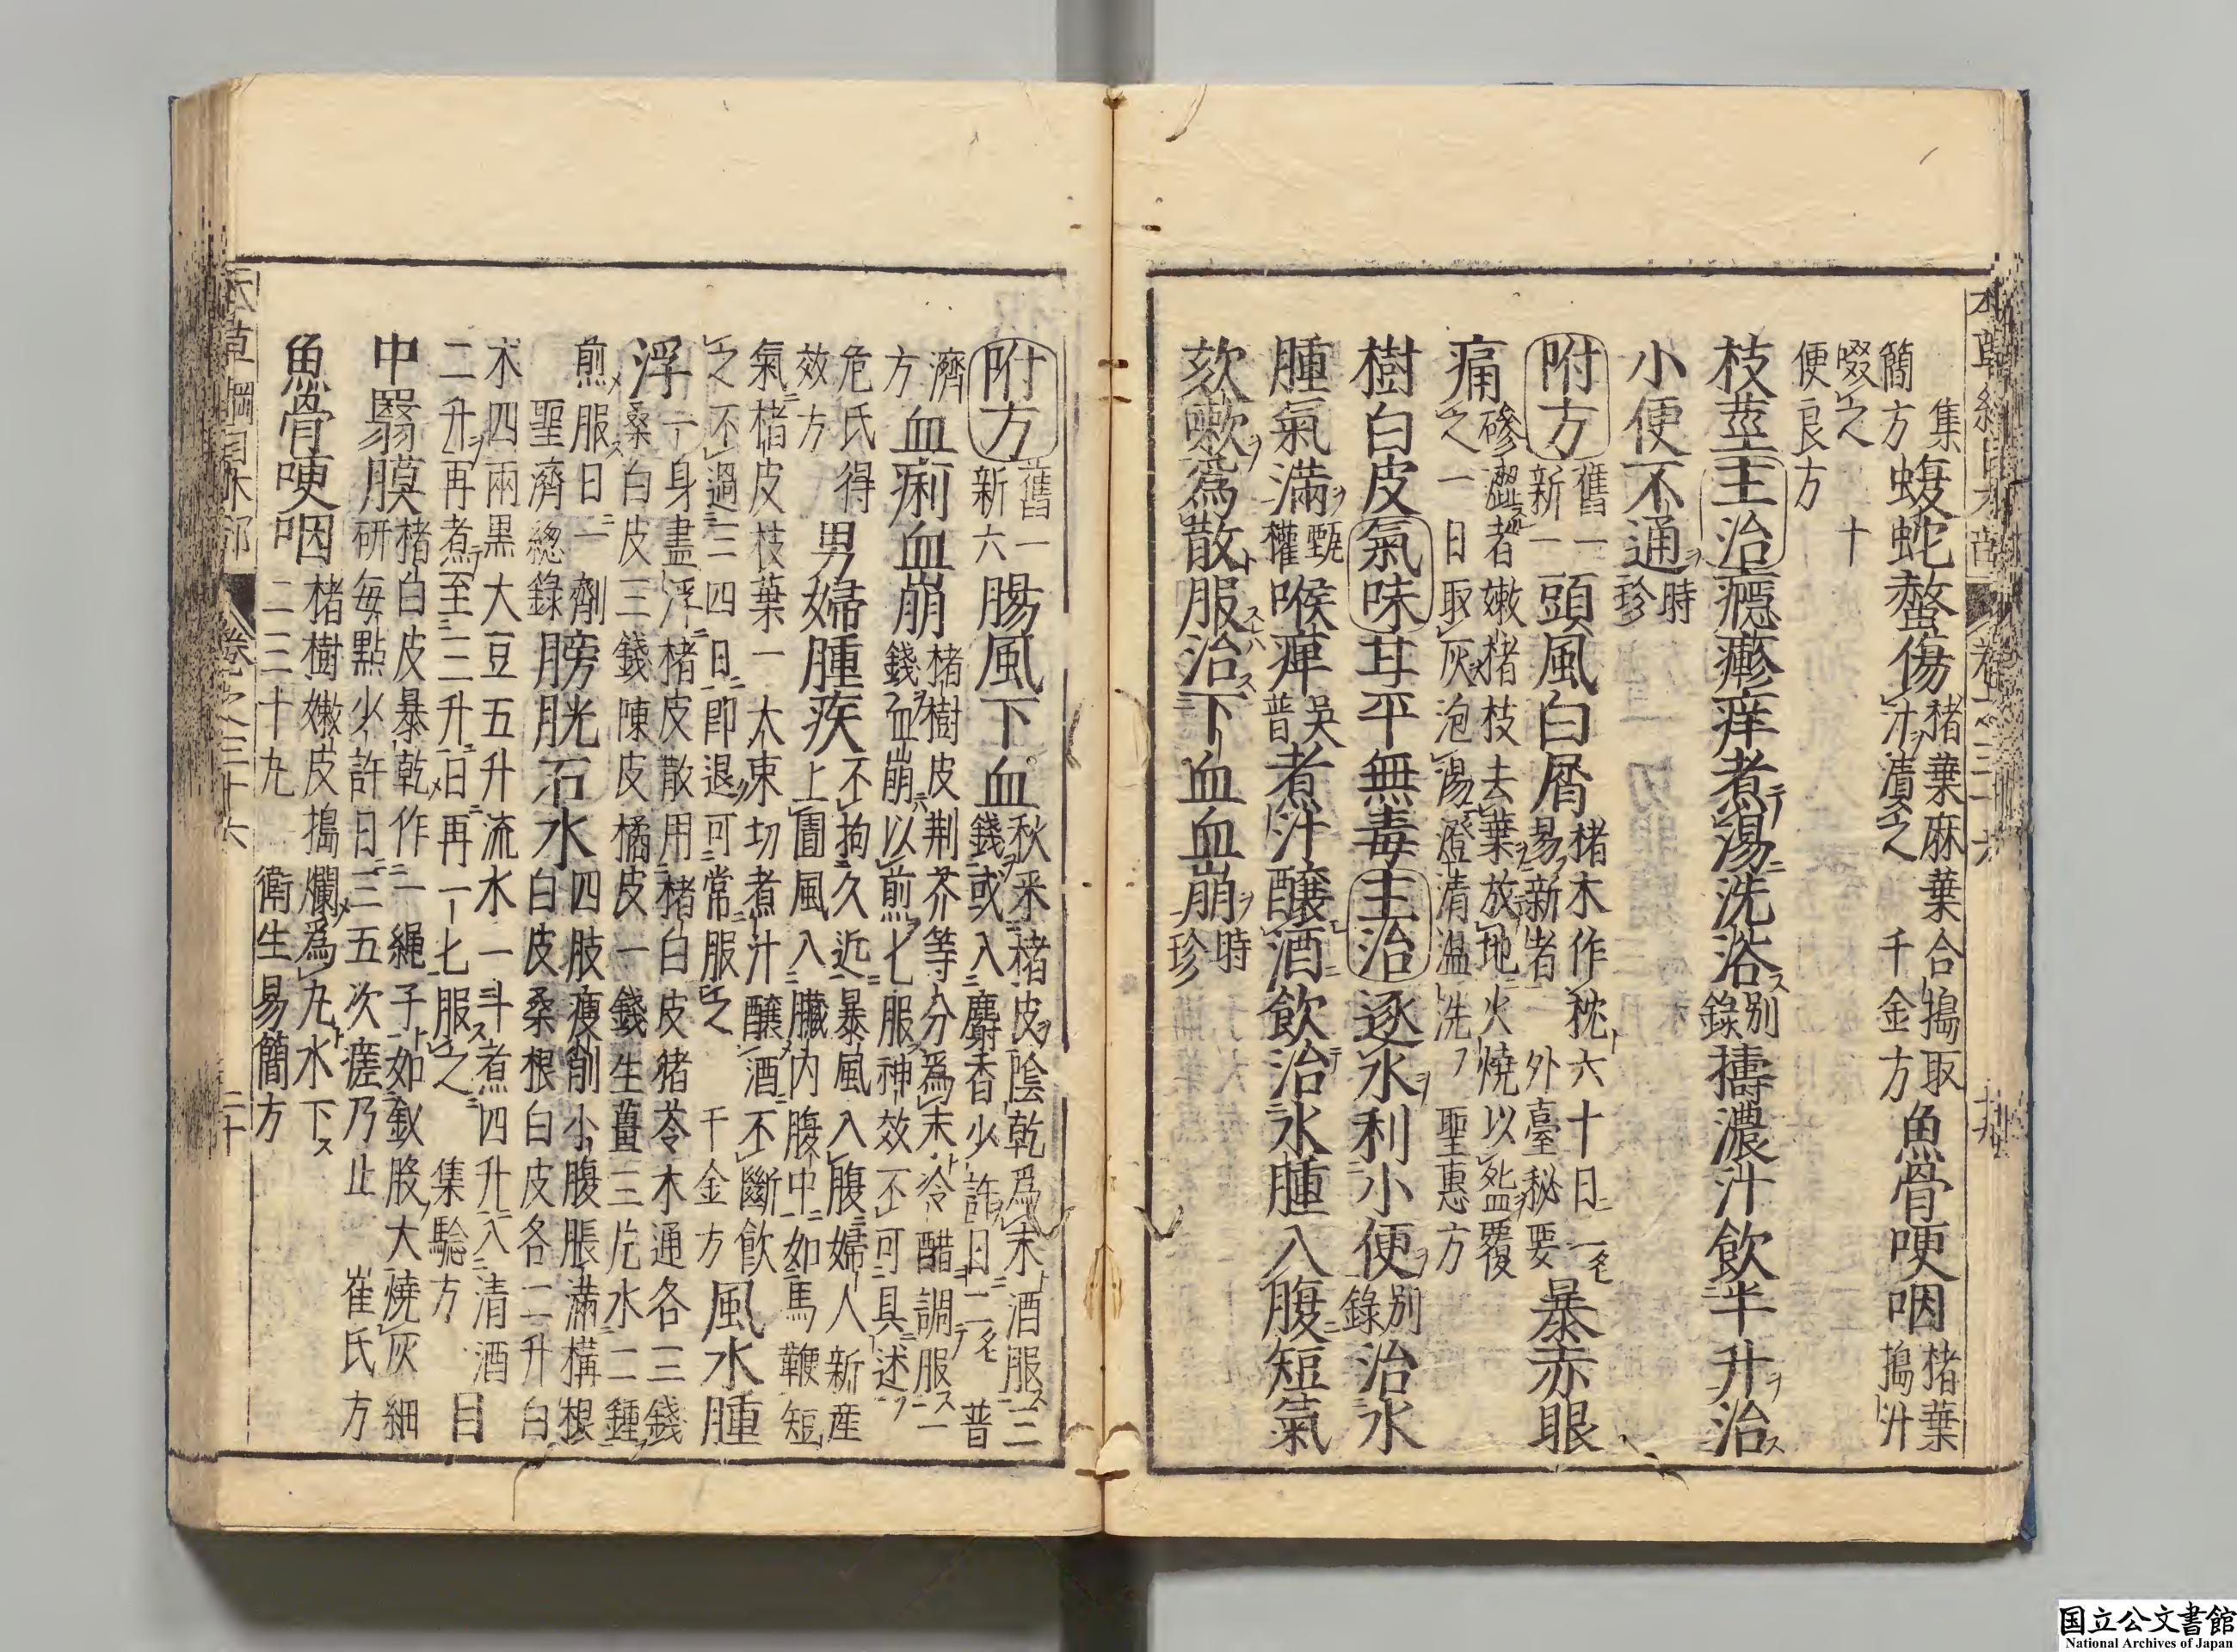 集 蝮蛇螫傷 楮葉麻葉合搗取
簡方 汁漬之 千金方 魚骨哽咽 楮葉搗汁
啜之 十
便良方
枝莖主治癮瘮痒煮湯洗浴 別錄 擣濃汁飲半升治
小便不通 時珍
附方 舊一新一 頭風白屑 楮木作枕六十日一易新者 外臺秘要 暴赤眼
痛 磣澀者嫩楮枝去葉放地火燒以盌覆
之一日取灰泡湯澄清温洗 聖惠方
樹白皮氣味甘平無毒主治逐水利小便 別錄 治水
腫氣滿 甄權 喉痺 吳普 煮汁釀酒飲治水腫入腹短氣
欬嗽爲散服治下血血崩 時珍
本草綱目木部 卷之三十六 十九
附方 舊一新六 腸風下血 秋采楮皮陰乾爲末酒服三
錢或入麝香少許日二 普
濟方 血痢血崩 楮樹皮荆芥等分爲末冷醋調服一
錢血崩以煎七服神效不可具述
危氏得效方 男婦腫疾 不拘久近暴風入腹婦人新産
上圊風入臟内腹中如馬鞭短
氣楮皮枝葉一大束切煮汁釀酒不斷飲
之不過三四日即退可常服之 千金方 風水腫
浮 一身盡浮楮皮散用楮白皮猪苓木通各三錢
桑白皮三錢陳皮橘皮一錢生薑三片水二鍾
煎服日一劑
聖濟總錄 膀胱石水 四肢瘦削小腹脹滿構根
白皮桑根白皮各二升白
朮四兩黑大豆五升流水一斗煮四升入清酒
二升再煮至三升日再一七服之 集驗方 目
中翳膜 楮白皮暴乾作一繩子如釵股大燒灰細
研每點少許日三五次瘥乃止 崔氏方
魚骨哽咽 楮樹嫩皮搗爛爲丸水下
二三十丸 衛生易簡方
本草綱目木部 卷之三十六 二十
国立公文書館
National Archives of Japan